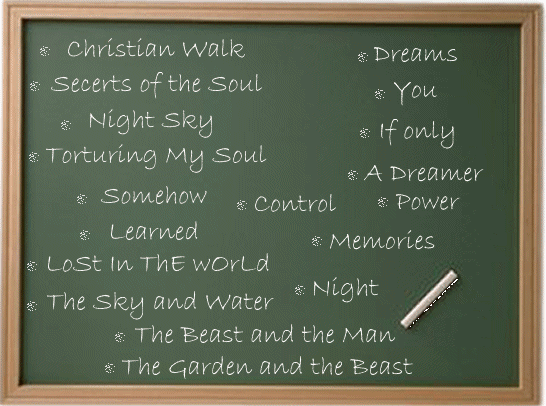 Christian Walk
Dreams
Secerts of the Soul
You
Night Sky
If only
Torturing My Soul
A Dreamer
Somehow
Control
Power
Learned
Memories
LoSt In ThE wOrLd
Night
The Sky and Water
The Beast and the Man
The Garden and the Beast